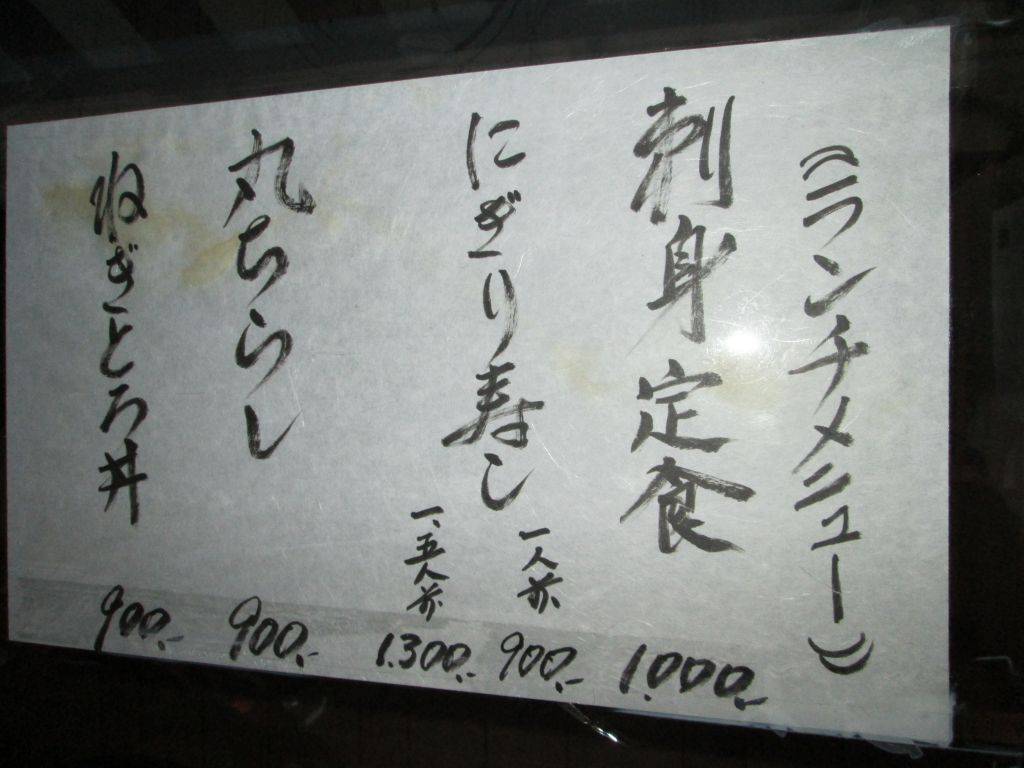 《ランチメニュー》
刺身定食 1.000.-
にぎり寿し 一人前 900.-
一、五人前 1.300.-
丸ちらし 900.-
ねぎとろ丼 900.-